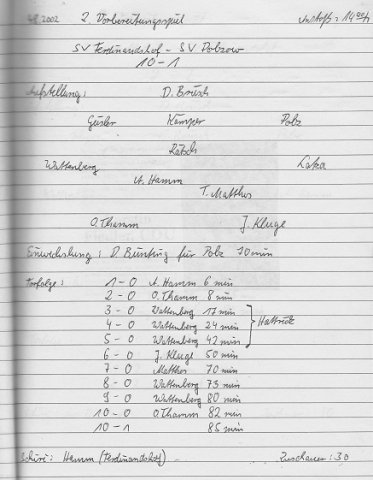 2002 2. Vorbereitungsspiel Anstoß: 14 00 h
SV Ferdinandshof - SV Dobzow
10 - 1
Aufstellung: D. Brüsch
Geisler Kämper Polz
Rätsch
Wuttenberg Laka
A. Hamm
T. Matthes
O. Thamm J. Kluge
Einwechslung: D. Bünting für Polz 70 min
Torfolge: 1 - 0 A. Hamm 6 min
2 - 0 O. Thamm 8 min
3 - 0 Wuttenberg 17 min
4 - 0 Wuttenberg 24 min Hattrick
5 - 0 Wuttenberg 42 min
6 - 0 J. Kluge 50 min
7 - 0 Matthes 70 min
8 - 0 Wuttenberg 73 min
9 - 0 Wuttenberg 80 min
10 - 0 O. Thamm 82 min
10 - 1 85 min
Schiri: Hamm (Ferdinandshof) Zuschauer: 30